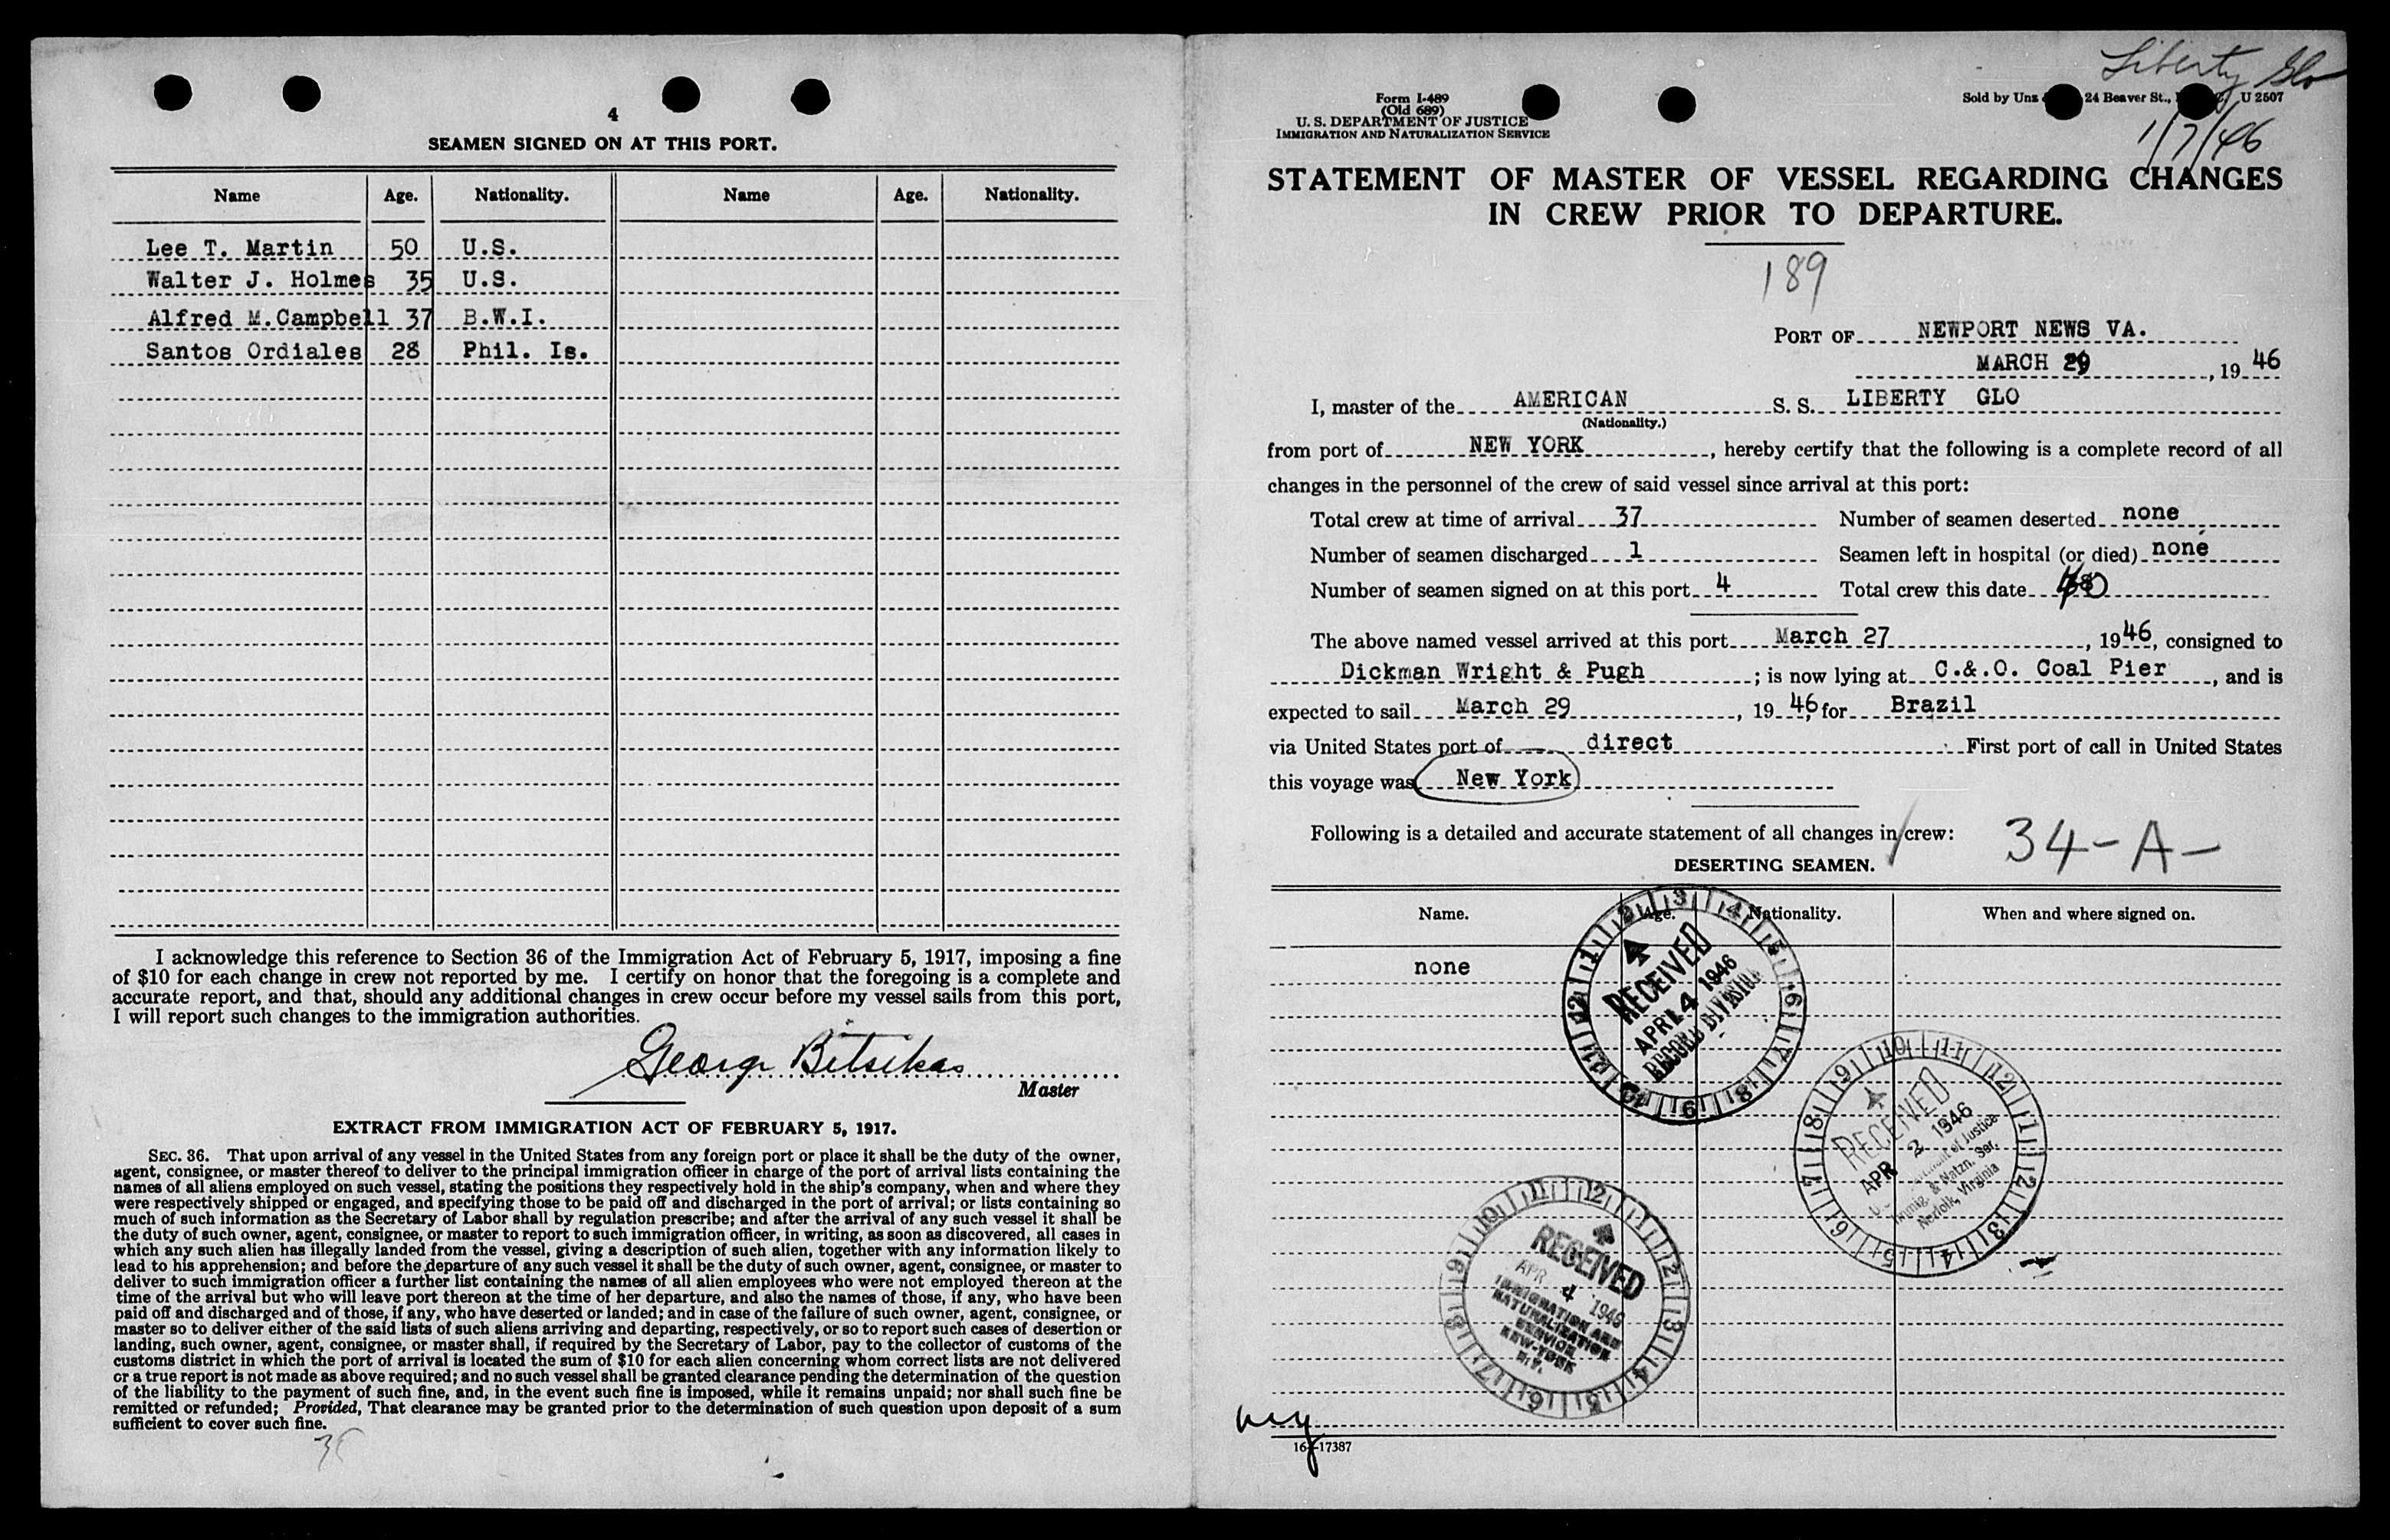 4
SEAMEN SIGNED ON AT THIS PORT.
Name Age. Nationality. Name Age. Nationality.
Lee T. Martin 50 U.S.
Walter J. Holmes 35 U.S.
Alfred M.Campbell 37 B.W.I.
Santos Ordiales 28 Phil. Is.
I acknowledge this reference to Section 36 of the Immigration Act of February 5, 1917, imposing a fine
of $10 for each change in crew not reported by me. I certify on honor that the foregoing is a complete and
accurate report, and that, should any additional changes in crew occur before my vessel sails from this port,
I will report such changes to the immigration authorities.
George Bitsikas
Master
EXTRACT FROM IMMIGRATION ACT OF FEBRUARY 5, 1917.
SEC. 36. That upon arrival of any vessel in the United States from any foreign port or place it shall be the duty of the owner,
agent, consignee, or master thereof to deliver to the principal immigration officer in charge of the port of arrival lists containing the
names of all aliens employed on such vessel, stating the positions they respectively hold in the ship's company, when and where they
were respectively shipped or engaged, and specifying those to be paid off and discharged in the port of arrival; or lists containing so
much of such information as the Secretary of Labor shall by regulation prescribe; and after the arrival of any such vessel it shall be
the duty of such owner, agent, consignee, or master to report to such immigration officer, in writing, as soon as discovered, all cases in
which any such alien has illegally landed from the vessel, giving a description of such alien, together with any information likely to
lead to his apprehension; and before the departure of any such vessel it shall be the duty of such owner, agent, consignee, or master to
deliver to such immigration officer a further list containing the names of all alien employees who were not employed thereon at the
time of the arrival but who will leave port thereon at the time of her departure, and also the names of those, if any, who have been
paid off and discharged and of those, if any, who have deserted or landed; and in case of the failure of such owner, agent, consignee, or
master so to deliver either of the said lists of such aliens arriving and departing, respectively, or so to report such cases of desertion or
landing, such owner, agent, consignee, or master shall, if required by the Secretary of Labor, pay to the collector of customs of the
customs district in which the port of arrival is located the sum of $10 for each alien concerning whom correct lists are not delivered
or a true report is not made as above required; and no such vessel shall be granted clearance pending the determination of the question
of the liability to the payment of such fine, and, in the event such fine is imposed, while it remains unpaid; nor shall such fine be
remitted or refunded; Provided, That clearance may be granted prior to the determination of such question upon deposit of a sum
sufficient to cover such fine.
Liberty Glo
1/7/46
Form I-489
(Old 689)
U. S. DEPARTMENT OF JUSTICE
IMMIGRATION AND NATURALIZATION SERVICE
Sold by Unz 24 Beaver St., U 2507
STATEMENT OF MASTER OF VESSEL REGARDING CHANGES
IN CREW PRIOR TO DEPARTURE.
189
PORT OF NEWPORT NEWS VA.
MARCH 29, 1946
I, master of the AMERICAN S. S. LIBERTY GLO
(Nationality.)
from port of NEW YORK, hereby certify that the following is a complete record of all
changes in the personnel of the crew of said vessel since arrival at this port:
Total crew at time of arrival 37 Number of seamen deserted none
Number of seamen discharged 1 Seamen left in hospital (or died) none
Number of seamen signed on at this port 4 Total crew this date 40
The above named vessel arrived at this port March 27, 1946, consigned to
Dickman Wright & Pugh; is now lying at C.&.O. Coal Pier, and is
expected to sail March 29, 1946 for Brazil
via United States port of direct. First port of call in United States
this voyage was New York
Following is a detailed and accurate statement of all changes in crew:
34-A-
DESERTING SEAMEN.
Name. Age. Nationality. When and where signed on.
none
RECEIVED
APR 4 1946
RECORD DIVISION
RECEIVED
APR 2 1946
U.S. Department of Justice
Immig. & Natzn. Ser.
Norfolk, Virginia
RECEIVED
APR 4 1946
IMMIGRATION AND
NATURALIZATION
SERVICE
NEW-YORK
N.Y.
16-17387